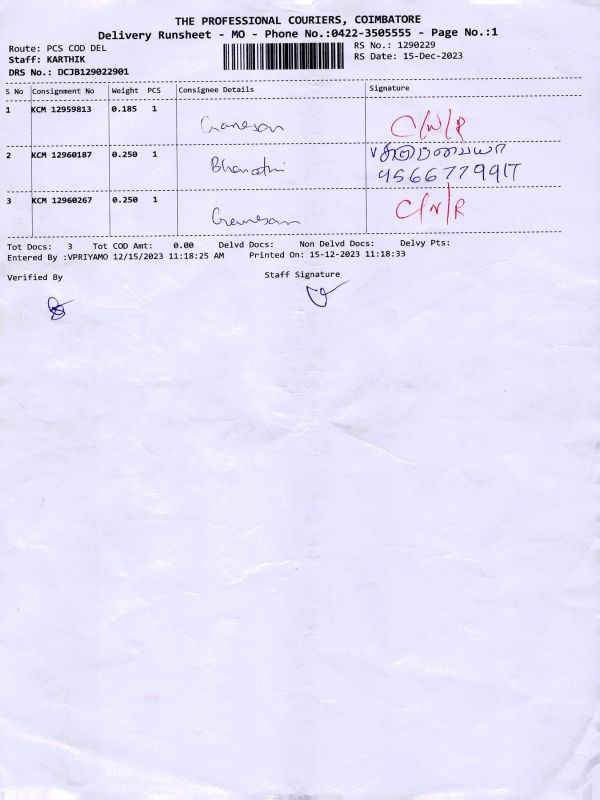 THE PROFESSIONAL COURIERS, COIMBATORE
Delivery Runsheet - MO - Phone No.:0422-3505555 - Page No.:1
Route: PCS COD DEL
RS No.: 1290229
Staff: KARTHIK
RS Date: 15-Dec-2023
DRS No.: DCJB129022901
S No Consignment No Weight PCS Consignee Details Signature
1 KCM 12959813 0.185 1 Ganesan C/N/R
2 KCM 12960187 0.250 1 Bharathi
3 KCM 12960267 0.250 1 Ganesan C/N/R
Tot Docs: 3 Tot COD Amt: 0.00 Delvd Docs: Non Delvd Docs: Delvy Pts:
Entered By :VPRIYAMO 12/15/2023 11:18:25 AM Printed On: 15-12-2023 11:18:33
Verified By Staff Signature